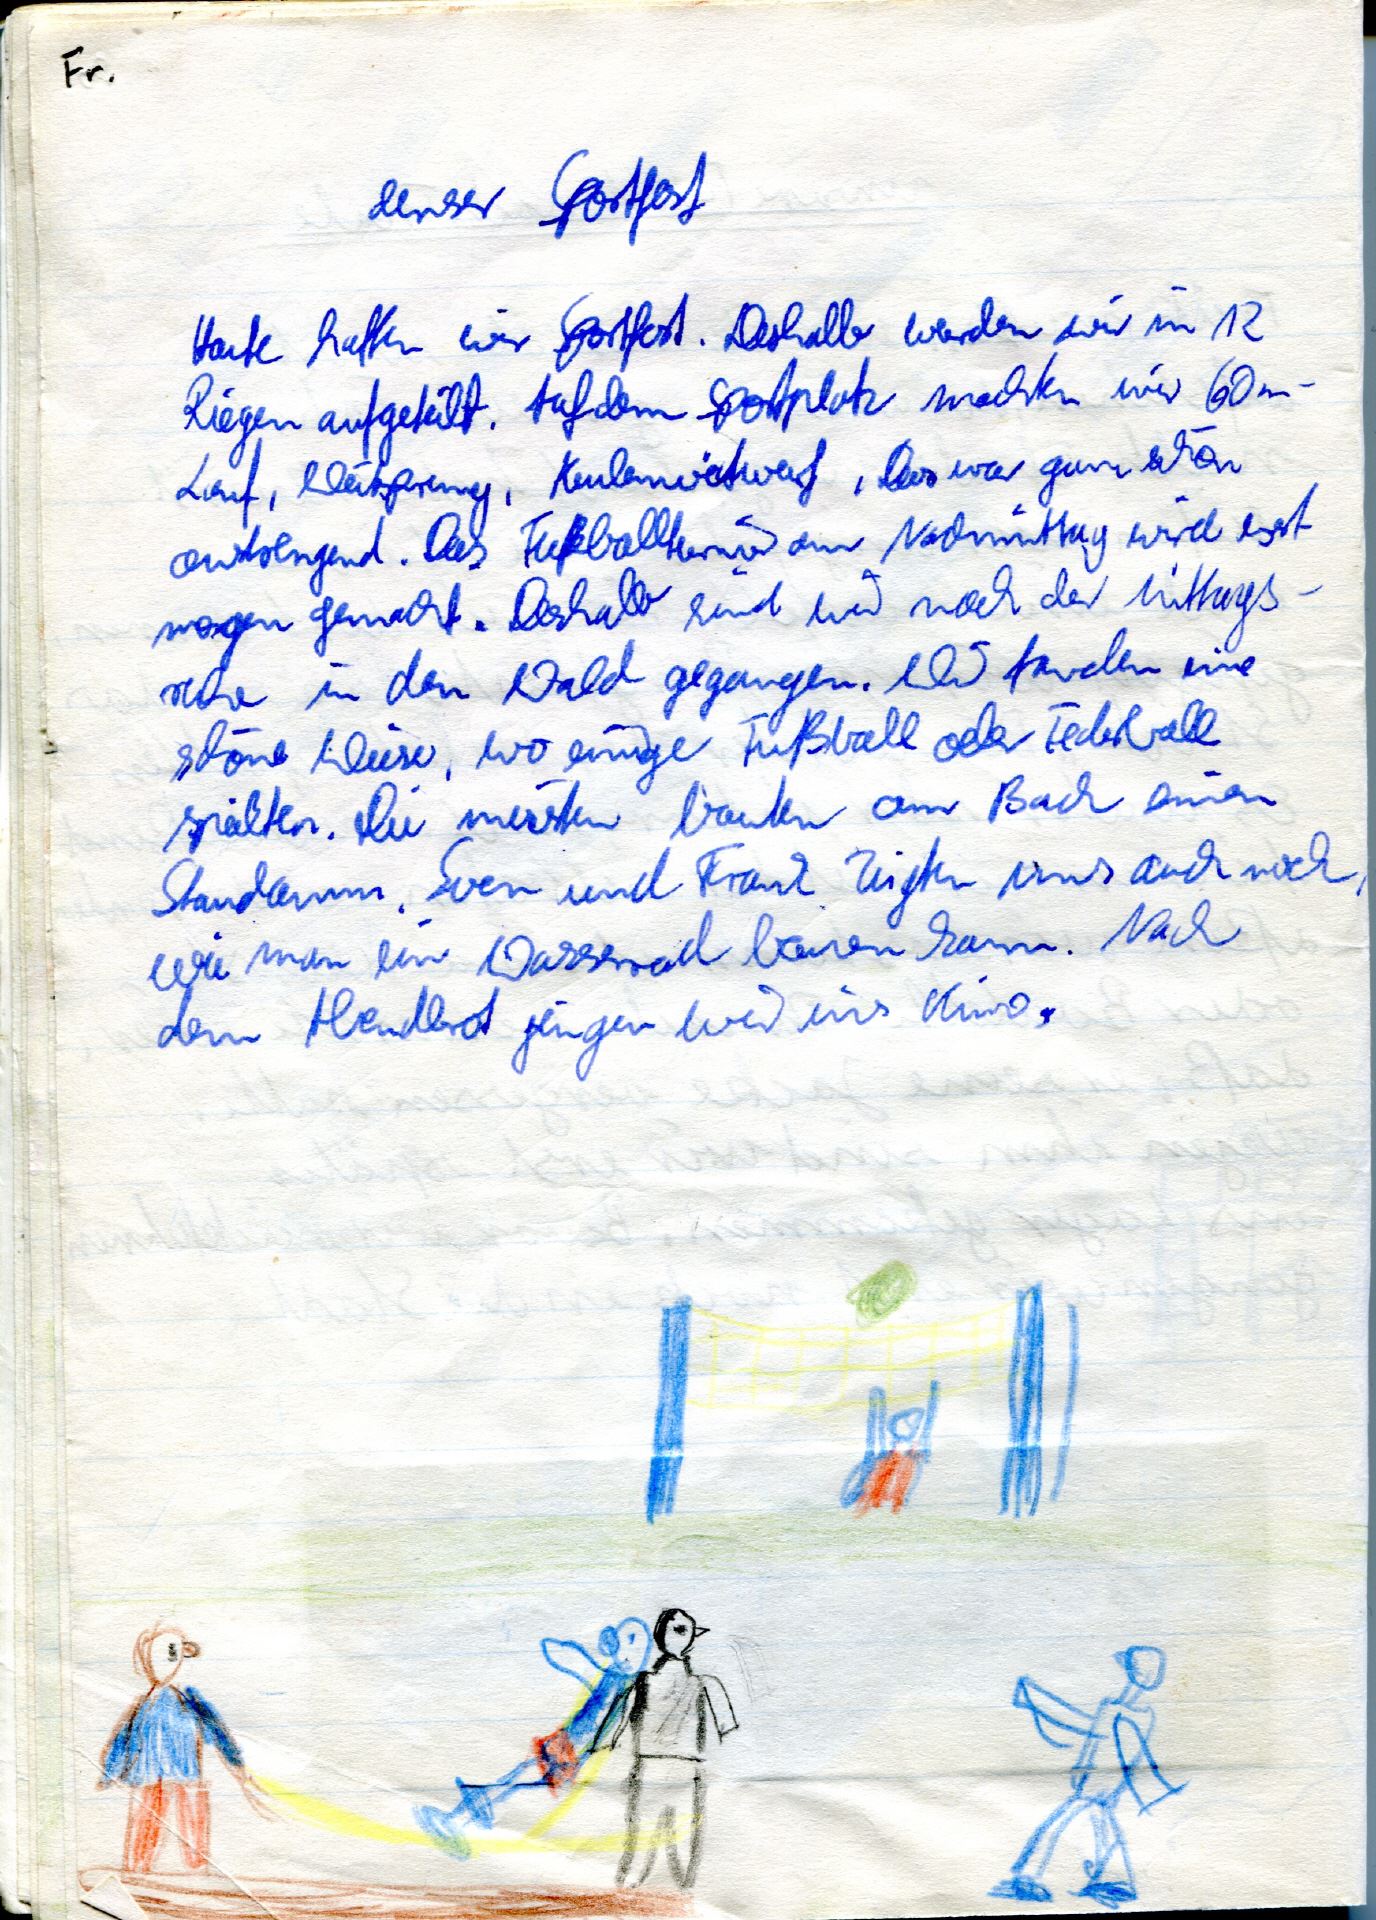 Fr.
Unser Sportfest
Heute hatten wir Sportfest. Deshalb werden wir in 12
Riegen aufgeteilt. Auf dem Sportplatz machten wir 60 m-
Lauf, Weitsprung, Keulenweitwurf, Das war ganz schön
anstrengend. Das Fußballturnier am Nachmittag wird erst
morgen gemacht. Deshalb sind wir nach der Mittags-
ruhe in den Wald gegangen. Wir fanden eine
schöne Wiese, wo einige Fußball oder Federball
spielten. Die meisten bauten am Bach einen
Staudamm. Sven und Frank zeigten uns auch noch,
wie man ein Wasserrad bauen kann. Nach
dem Abendbrot gingen wir ins Kino.